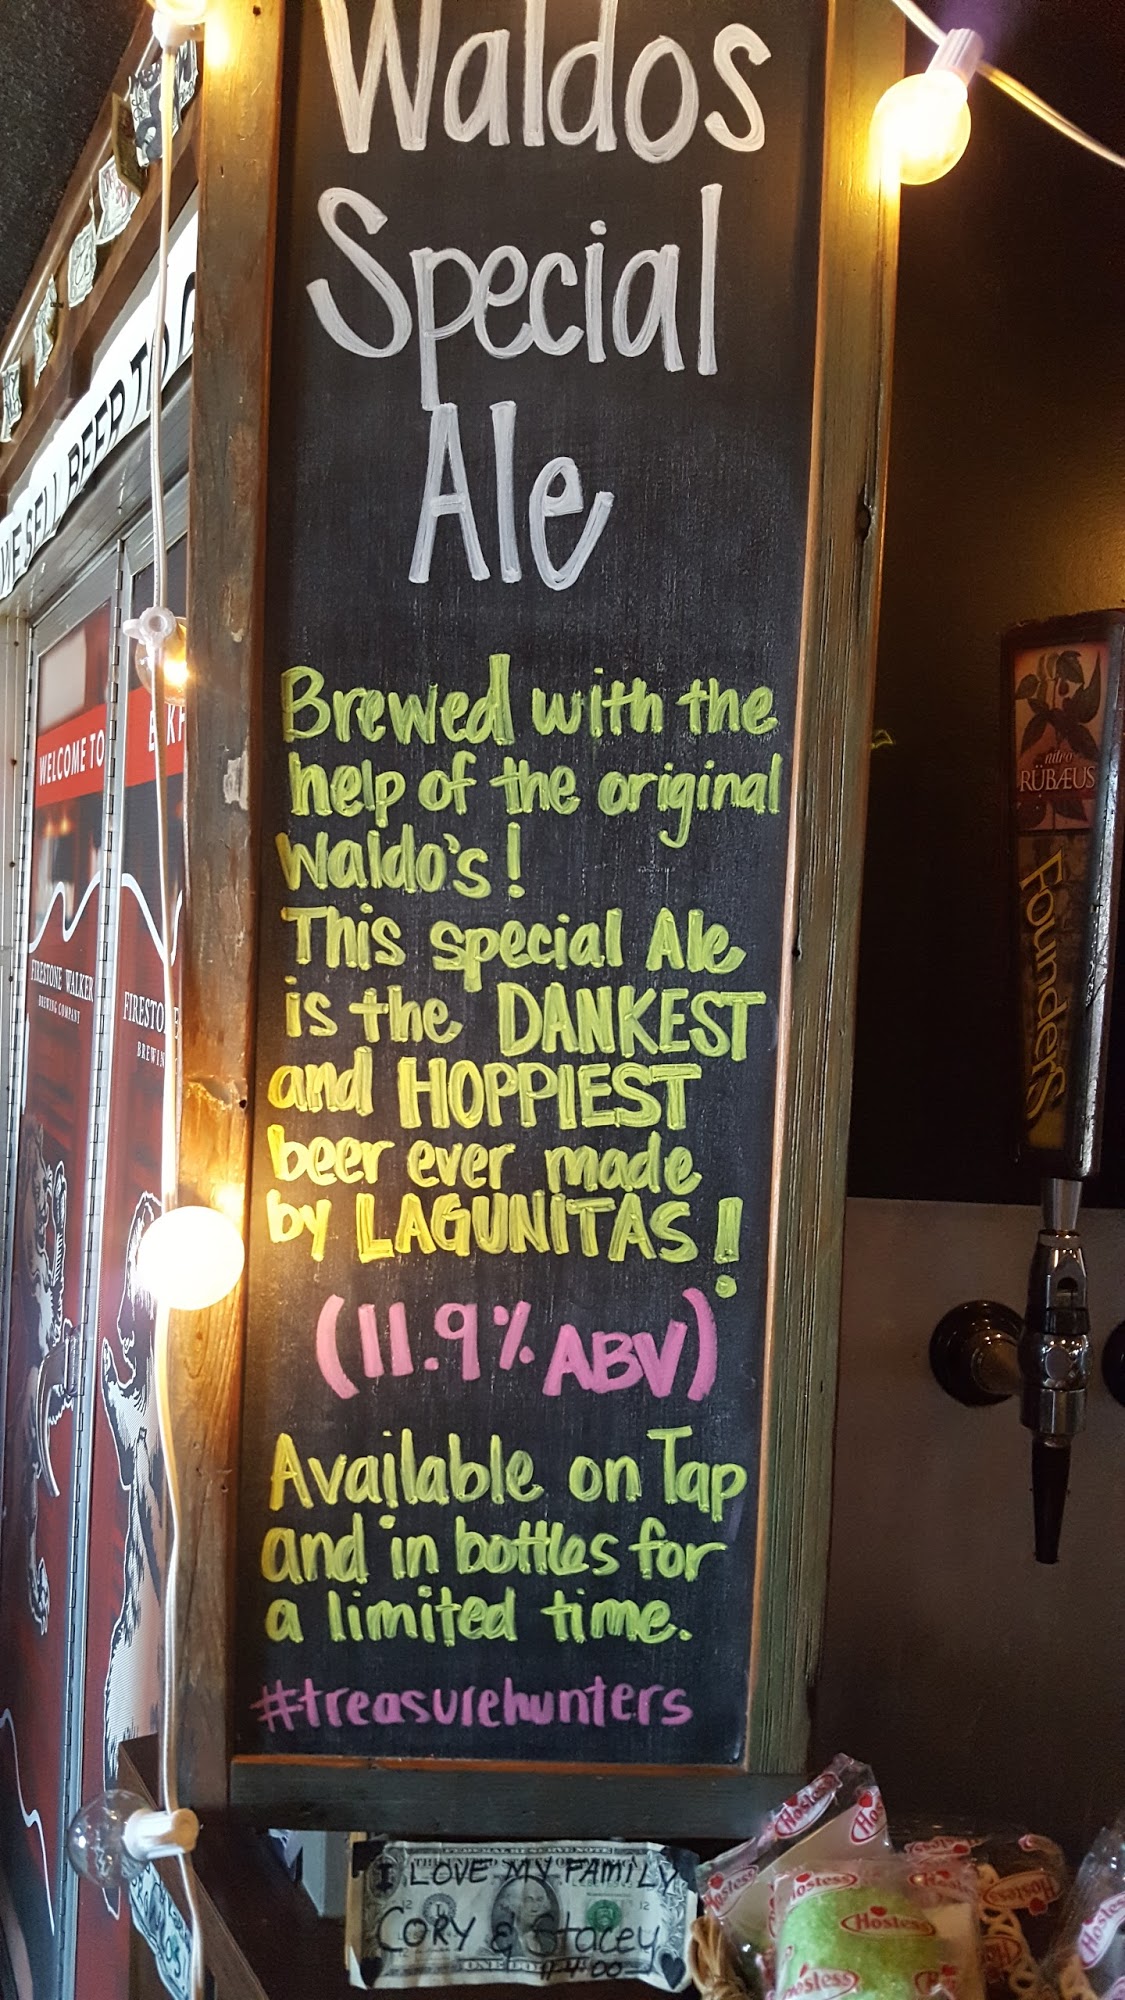 Waldos
Special
Ale
Brewed with the
help of the original
Waldo's!
This special Ale
is the DANKEST
and HOPPIEST
beer ever made
by LAGUNITAS!
(11.9% ABV)
Available on Tap
and in bottles for
a limited time.
#treasurehunters
WE SELL BEER TO
WELCOME TO
FIRESTONE WALKER
BREWING COMPANY
FIRESTO
BREWIN
nitro
RÜBÆUS
Founders
FEDERAL RESERVE NOTE
I LOVE MY FAMILY
CORY & Stacey
11-4-00
Hostess
Hostess
Hostess
Hostess
Hostess